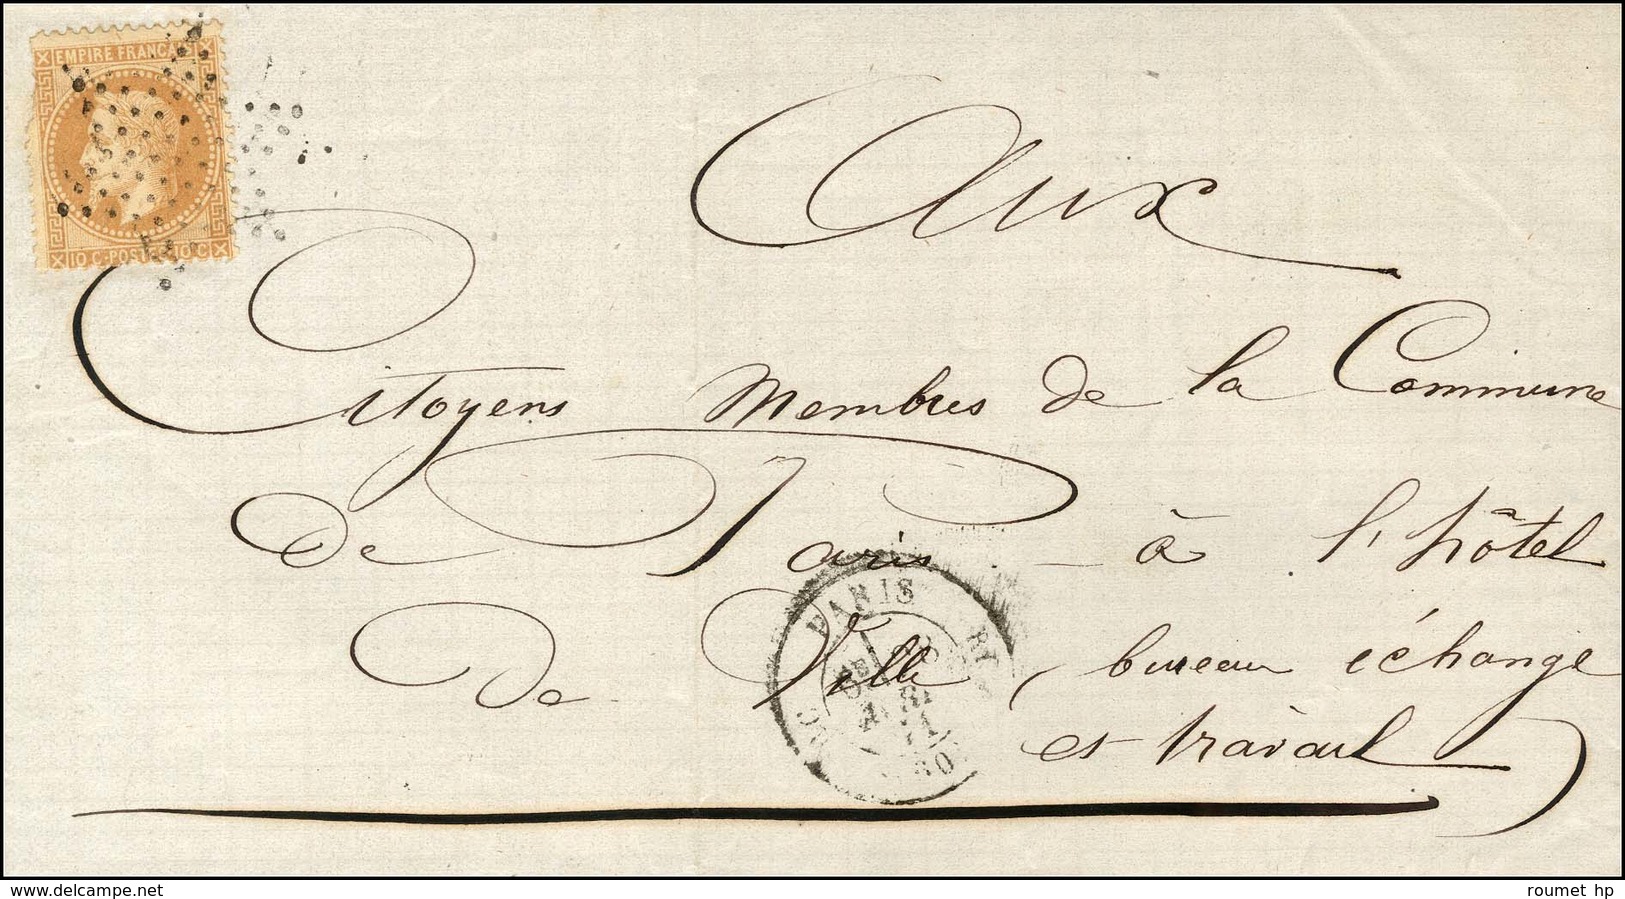 EMPIRE FRANÇAIS
10 C. POSTES 10 C
Aux
Citoyens Membres de la Commune
de Paris à l'hôtel
de Ville, bureau échange
et travail
PARIS
AVRIL
71
© www.delcampe.net
roumet hp